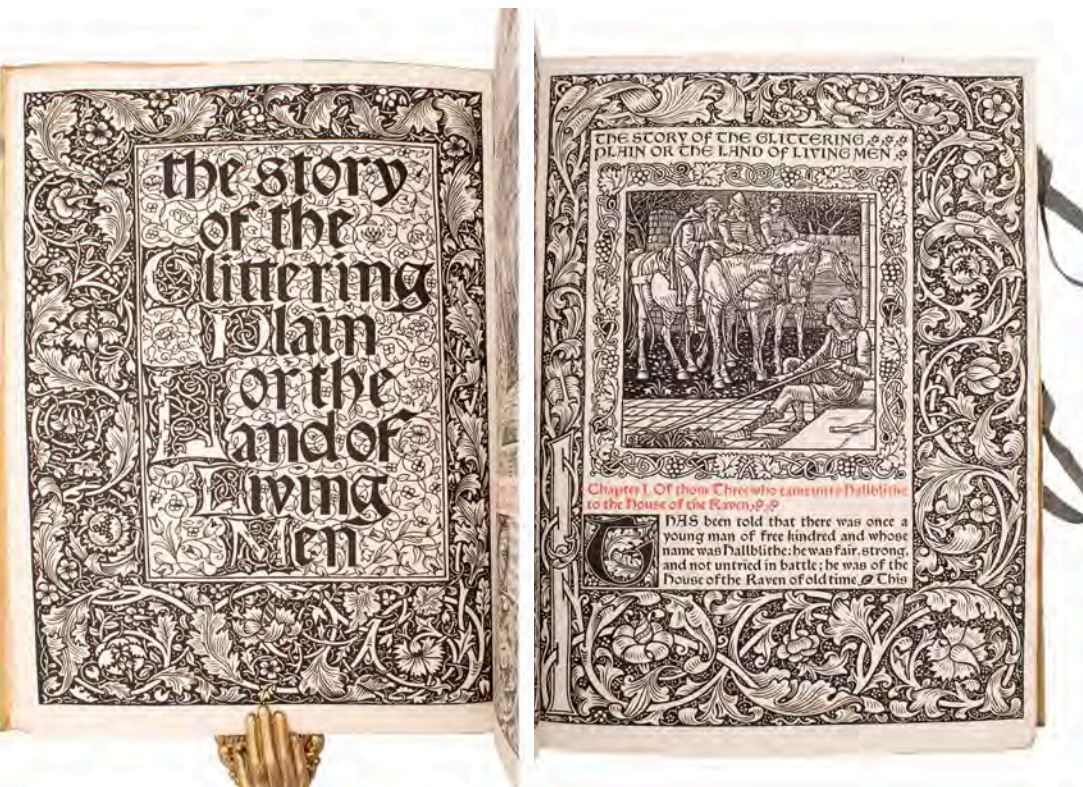 the story
of the
Glittering
Plain
or the
Land of
Living
Men
THE STORY OF THE GLITTERING
PLAIN OR THE LAND OF LIVING MEN
Chapter I. Of those Three who came unto Hallblithe
to the House of the Raven
IT HAS been told that there was once a
young man of free kindred and whose
name was Hallblithe: he was fair, strong,
and not untried in battle; he was of the
House of the Raven of old time. This